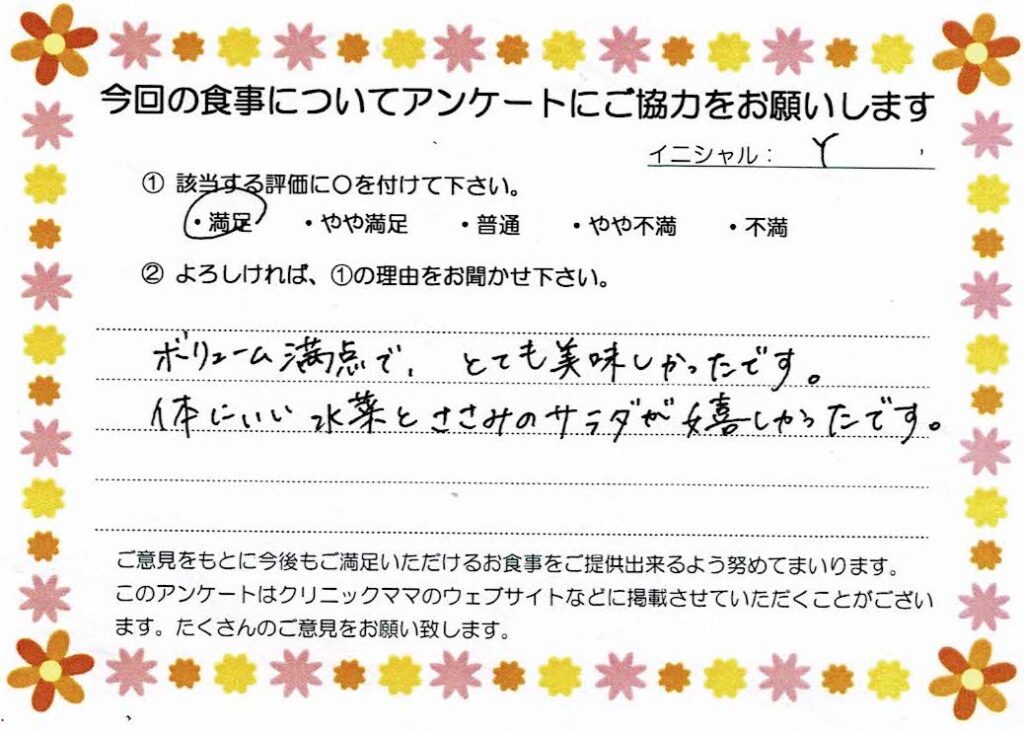 今回の食事についてアンケートにご協力をお願いします
イニシャル： Y
① 該当する評価に〇を付けて下さい。
・満足 ・やや満足 ・普通 ・やや不満 ・不満
② よろしければ、①の理由をお聞かせ下さい。
ボリューム満点で、とても美味しかったです。
体にいい水菜とささみのサラダが嬉しかったです。
ご意見をもとに今後もご満足いただけるお食事をご提供出来るよう努めてまいります。
このアンケートはクリニックママのウェブサイトなどに掲載させていただくことがござい
ます。たくさんのご意見をお願い致します。